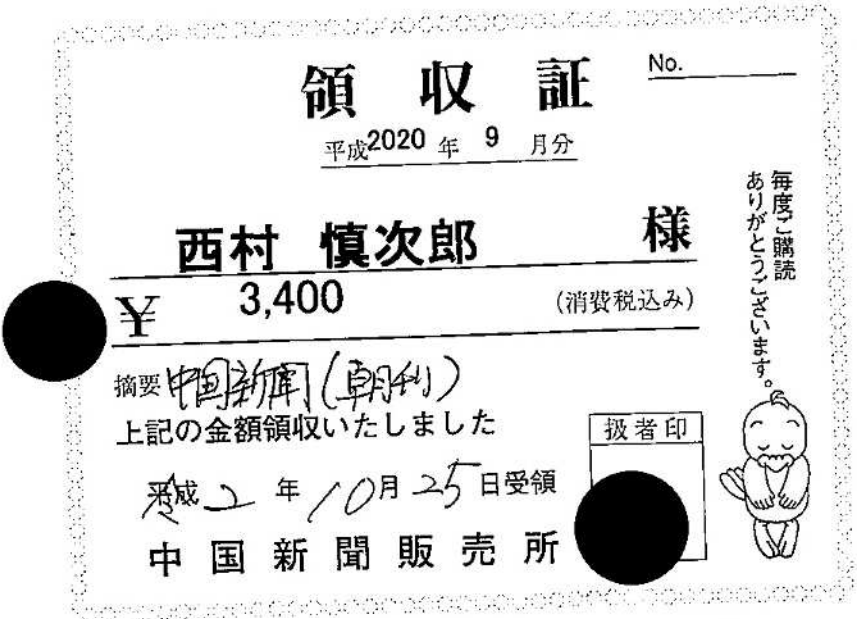 領収証
No.
平成2020年 9 月分
西村 慎次郎 様
¥ 3,400 (消費税込み)
摘要 中国新聞(朝刊)
上記の金額領収いたしました
扱者印
平成 令 2 年 10月 25日受領
中国新聞販売所
毎度ご購読
ありがとうございます。